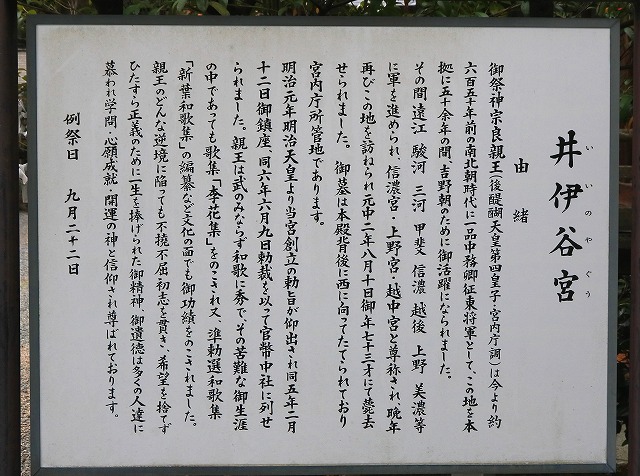 井伊谷宮
いいのやぐう
由緒
御祭神宗良親王(後醍醐天皇第四皇子・宮内庁調)は今より約
六百五十年前の南北朝時代に一品中務卿征東将軍として、この地を本
拠に五十余年の間、吉野朝のために御活躍になられました。
その間遠江 駿河 三河 甲斐 信濃 越後 上野 美濃等
に軍を進められ、信濃宮・上野宮・越中宮と尊称され、晩年
再びこの地を訪ねられ元中二年八月十日御年七十三才にて薨去
せられました。 御墓は本殿背後に西に向ってたてられており
宮内庁所管地であります。
明治元年明治天皇より当宮創立の勅旨が仰出され同五年二月
十二日御鎮座、同六年六月九日勅裁を以って官幣中社に列せ
られました。親王は武のみならず和歌に秀で、その苦難な御生涯
の中であっても歌集「李花集」をのこされ又、準勅選和歌集
「新葉和歌集」の編纂など文化の面でも御功績をのこされました。
親王のどんな逆境に陥っても不撓不屈、初志を貫き、希望を捨てず
ひたすら正義のために一生を捧げられた御精神、御遺徳は多くの人達に
慕われ学問・心願成就・開運の神と信仰され尊ばれております。
例祭日 九月二十二日